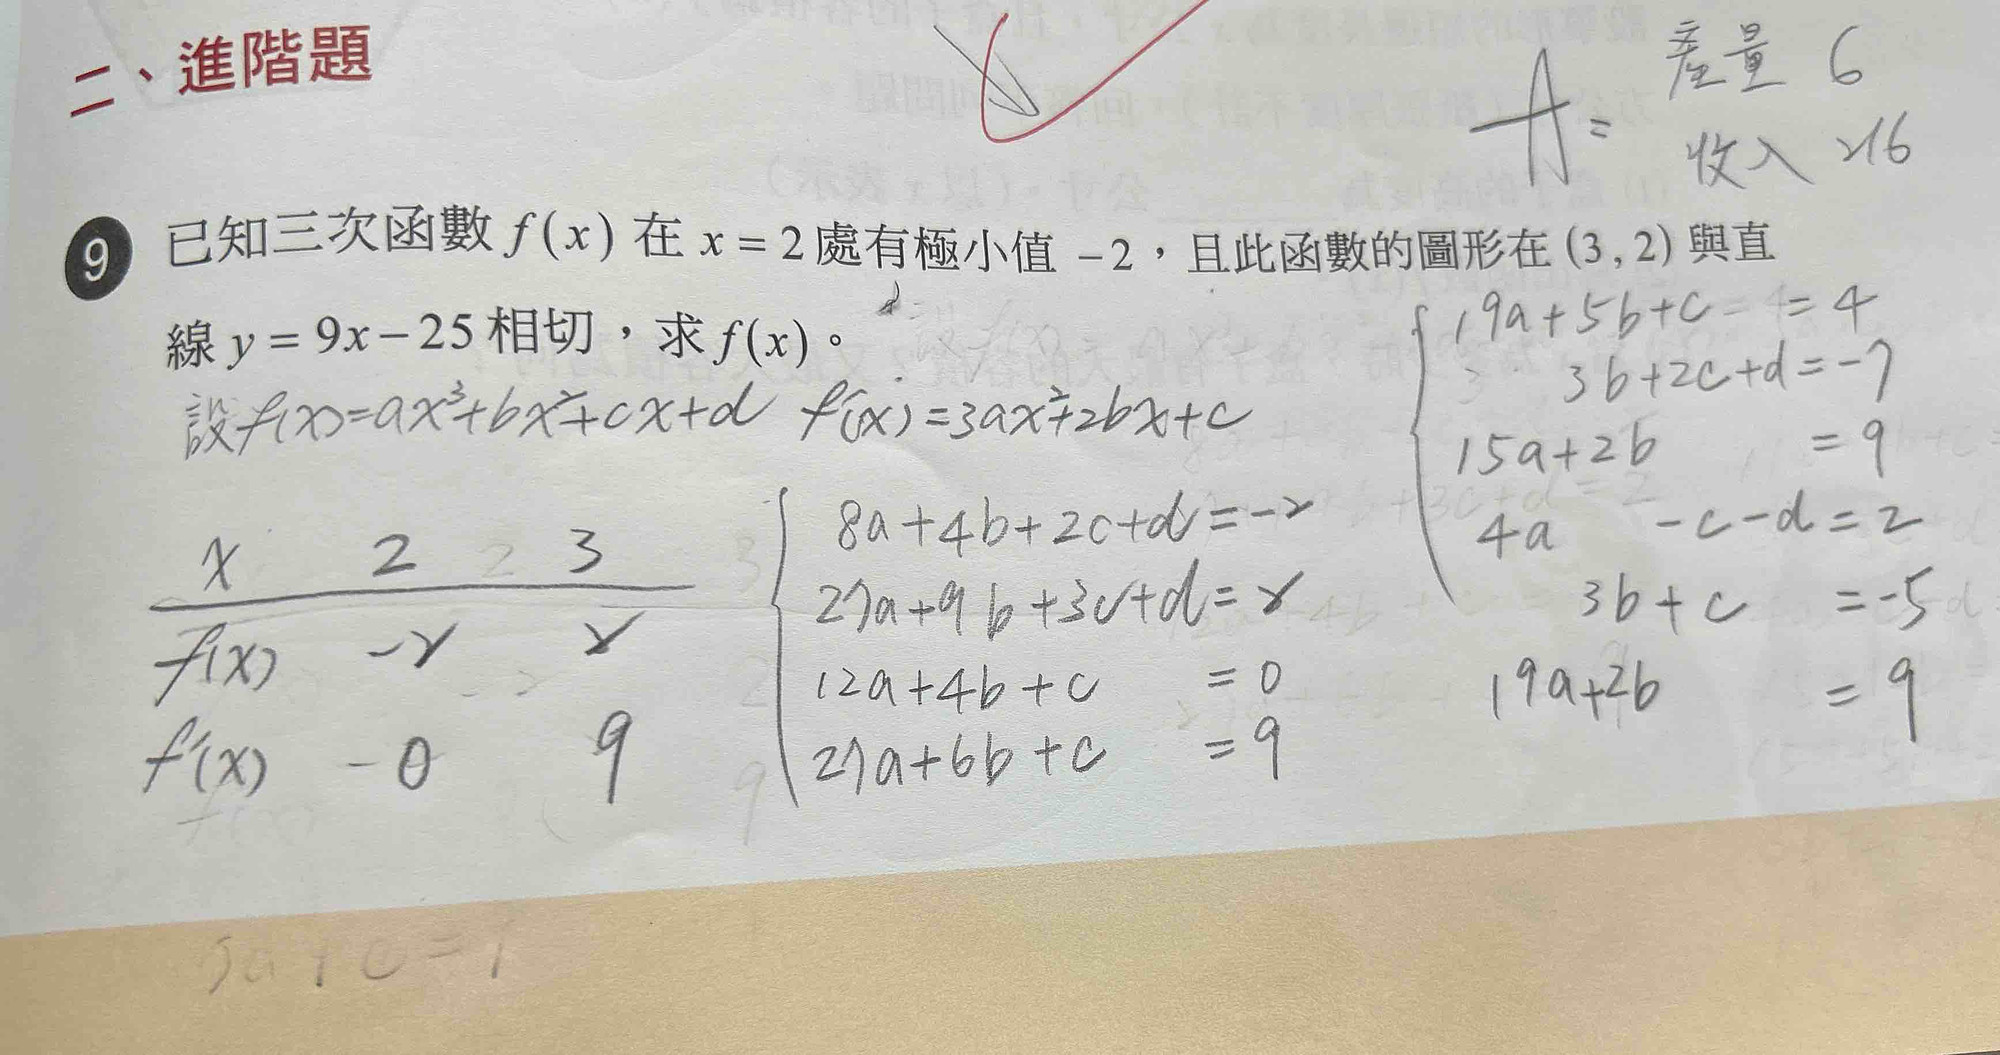 二、進階題
A= 產量 6
收入 216
9 已知三次函數 f(x) 在 x = 2 處有極小值 -2，且此函數的圖形在 (3, 2) 與直
線 y = 9x - 25 相切，求 f(x)。
設f(x)=ax³+bx²+cx+d f'(x)=3ax²+2bx+c
x 2 3
f(x) -2 2
f'(x) 0 9
8a+4b+2c+d=-2
27a+9b+3c+d=2
12a+4b+c =0
27a+6b+c =9
19a+5b+c =4
3b+2c+d=-7
15a+2b =9
4a -c-d=2
3b+c =-5
19a+2b =9